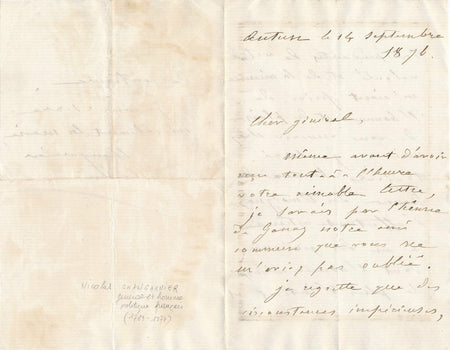 Autun le 14 septembre
1876.
Cher général,
même avant d'avoir
reçu tout à l'heure
votre aimable lettre,
je savais par
de Ganay notre ami
commun que vous ne
m'aviez pas oublié.
je regrette que des
circonstances impérieuses,
Nicolas CHANGARNIER
général et homme
politique français
(1793-1877)